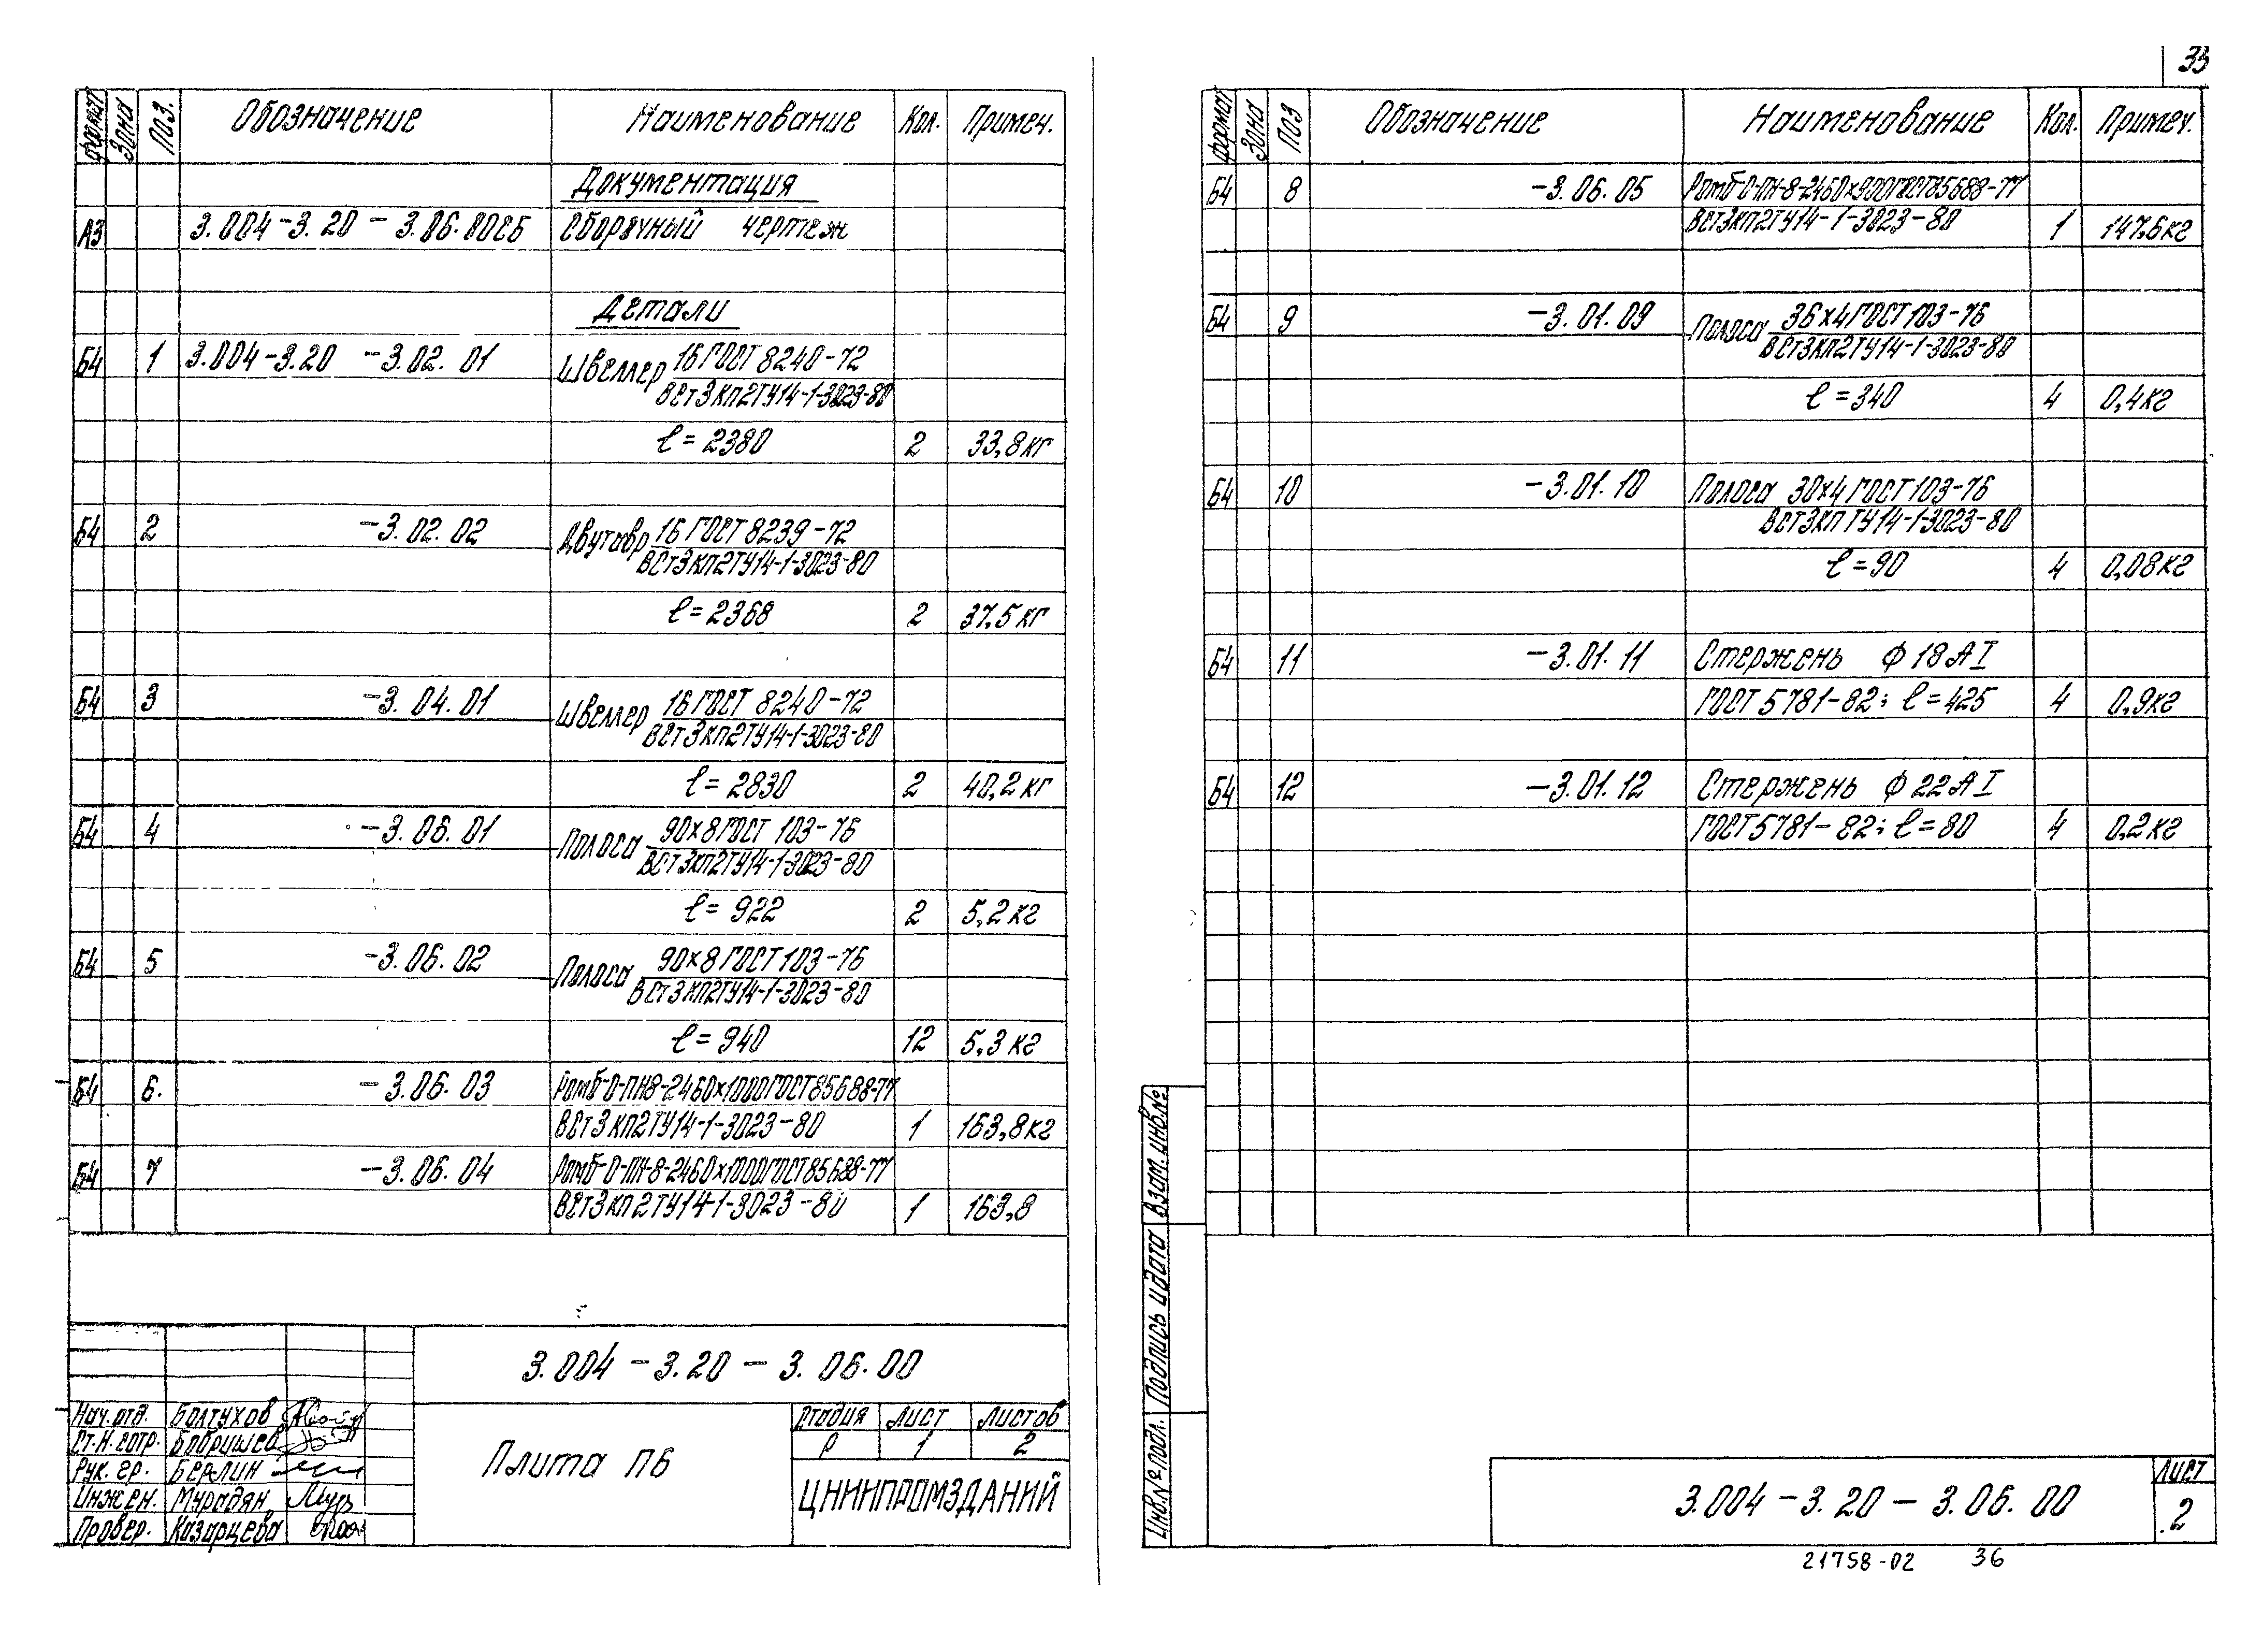 33
формат Зона Поз. Обозначение Наименование Кол. Примеч.
Документация
А3 3.004-3.20 - 3.06.00СБ Сборочный чертеж
Детали
Б4 1 3.004-3.20 -3.02.01 Швеллер 16 ГОСТ 8240-72
ВСт3кп2ТУ14-1-3023-80
ℓ=2380 2 33,8кг
Б4 2 -3.02.02 Двутавр 16 ГОСТ 8239-72
ВСт3кп2ТУ14-1-3023-80
ℓ=2368 2 37,5кг
Б4 3 -3.04.01 Швеллер 16 ГОСТ 8240-72
ВСт3кп2ТУ14-1-3023-80
ℓ=2830 2 40,2кг
Б4 4 -3.06.01 Полоса 90×8 ГОСТ 103-76
ВСт3кп2ТУ14-1-3023-80
ℓ=922 2 5,2кг
Б4 5 -3.06.02 Полоса 90×8 ГОСТ 103-76
ВСт3кп2ТУ14-1-3023-80
ℓ=940 12 5,3кг
Б4 6. -3.06.03 Ромб-О-ПН8-2460×1000ГОСТ85688-77
ВСт3кп2ТУ14-1-3023-80 1 163,8кг
Б4 7 -3.06.04 Ромб-О-ПН-8-2460×1000ГОСТ85688-77
ВСт3кп2ТУ14-1-3023-80 1 163,8
3.004-3.20-3.06.00
Нач.отд. Болтухов
Ст.н.сотр. Бобришев
Рук.гр. Берлин
Инжен. Мурадян
Провер. Казарцева
Плита П6
Стадия Лист Листов
Р 1 2
ЦНИИПРОМЗДАНИЙ
формат Зона Поз Обозначение Наименование Кол. Примеч.
Б4 8 -3.06.05 Ромб-О-ПН-8-2460×900ГОСТ85688-77
ВСт3кп2ТУ14-1-3023-80 1 147,6кг
Б4 9 -3.01.09 Полоса 36×4 ГОСТ 103-76
ВСт3кп2ТУ14-1-3023-80
ℓ=340 4 0,4кг
Б4 10 -3.01.10 Полоса 30×4 ГОСТ 103-76
ВСт3кп ТУ14-1-3023-80
ℓ=90 4 0,08кг
Б4 11 -3.01.11 Стержень Ф18АI
ГОСТ 5781-82; ℓ=425 4 0,9кг
Б4 12 -3.01.12 Стержень Ф22АI
ГОСТ 5781-82; ℓ=80 4 0,2кг
Инв.№ подл. Подпись и дата Взам. инв.№
3.004-3.20-3.06.00
Лист
2
21758-02 36